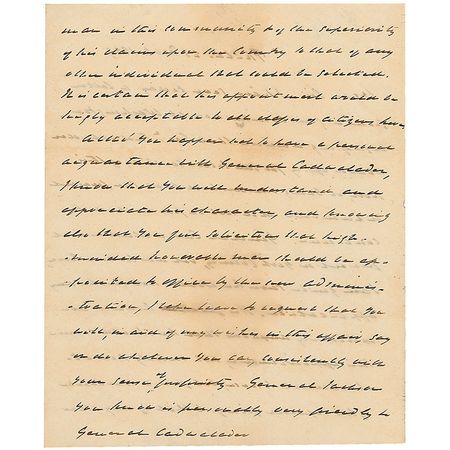 man in this community & of the superiority
of his claims upon the Country to that of any
other individual that could be selected.
It is certain that his appointment would be
highly acceptable to all classes of citizens here
Altho' You happen not to have a personal
acquaintance with General Cadwalader,
I know that You will understand and
appreciate his character, and knowing
also that You feel solicitous that high-
-minded honorable men should be ap-
-pointed to office by the new Adminis-
-tration, I take leave to request that You
will, in aid of my wishes in this affair, say
or do whatever You can, consistently with
Your sense of propriety. General Jackson
You know is personally very friendly to
General Cadwalader